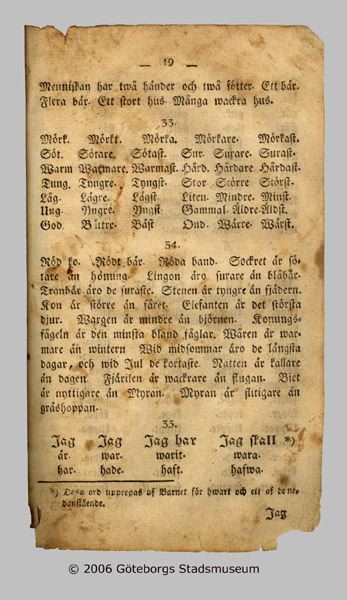 — 19 —
Menniskan har twå händer och twå fötter. Ett bär.
Flera bär. Ett stort hus. Många wackra hus.
33.
Mörk. Mörkt. Mörka. Mörkare. Mörkast.
Söt. Sötare. Sötast. Sur. Surare. Surast.
Warm Warmare. Warmast. Hård. Hårdare Hårdast.
Tung. Tyngre. Tyngst. Stor Större Störst.
Låg. Lägre. Lägst Liten. Mindre. Minst.
Ung. Yngre. Yngst. Gammal. Äldre. Äldst.
God. Bättre. Bäst Ond. Wärre. Wärst.
34.
Röd ko. Rödt bär. Röda band. Sockret är sö-
tare än honung. Lingon äro surare än blåbär.
Tranbär äro de suraste. Stenen är tyngre än fjädern.
Kon är större än fåret. Elefanten är det största
djur. Wargen är mindre än björnen. Konungs-
fågeln är den minsta bland fåglar. Wåren är war-
mare än wintern Wid midsommar äro de längsta
dagar, och wid Jul de kortaste. Natten är kallare
än dagen Fjärilen är wackrare än flugan. Biet
är nyttigare än Myran. Myran är flitigare än
gräshoppan.
35.
Jag Jag Jag har Jag skall *)
är. war. warit. wara.
har. hade. haft. hafwa.
*) Dessa ord upprepas af Barnet för hwart och ett af de ne-
danstående.
Jag
© 2006 Göteborgs Stadsmuseum